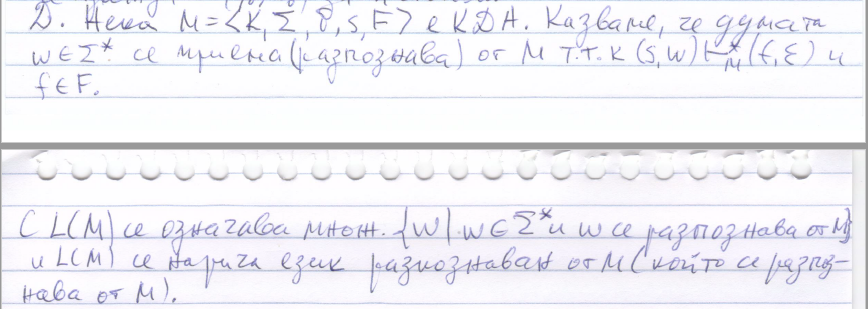 Д. Нека M=<K,Σ,δ,s,F> е КДА. Казваме, че думата
w∈Σ* се приема (разпознава) от M т.т.к (s,w)⊢*_M(f,ε) и
f∈F.
С L(M) се означава множ. {w|w∈Σ* и w се разпознава от M}
и L(M) се нарича език разпознаван от M (който се разпоз-
нава от M).